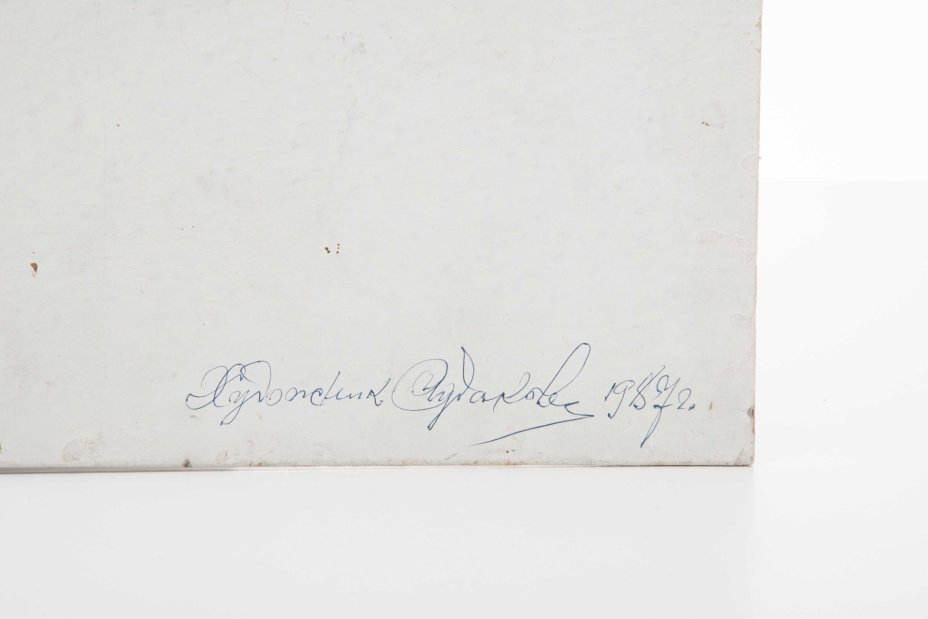 Художник Судаков 1987г.